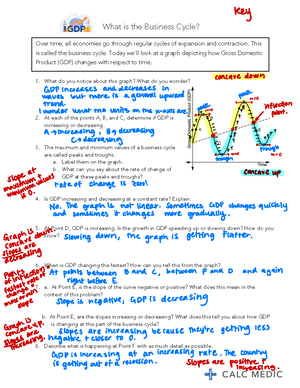 key
GDP
What is the Business Cycle?
Over time, all economies go through regular cycles of expansion and contraction. This is
called the business cycle. Today we'll look at a graph depicting how Gross Domestic
Product (GDP) changes with respect to time.
concave down
1. What do you notice about this graph? What do you wonder?
GDP increases and decreases in
waves but there is a general upward
trend.
I wonder what the units on the y-axis are.
2. At each of the points A, B, and C, determine if GDP is
increasing or decreasing.
A → increasing, B → decreasing
C → decreasing
3. The maximum and minimum values of a business cycle
are called peaks and troughs.
a. Label them on the graph.
b. What can you say about the rate of change of
GDP at these peaks and troughs?
rate of change is zero!
peak
peak
inflection
point
trough
trough
Time
concave up
Slope at
maximum
is 0.
4. Is GDP increasing and decreasing at a constant rate? Explain.
No. The graph is not linear. Sometimes GDP changes quickly
and sometimes it changes more gradually.
5. At Point D, GDP is increasing. Is the growth in GDP speeding up or slowing down? How do you
know?
Slowing down, the graph is getting flatter.
Graph is
concave down,
slopes are
decreasing
6. When is GDP changing the fastest? How can you tell this from the graph?
At points between B and C, between F and D and again
right before E
a. At Point E, is the slope of the curve negative or positive? What does this mean in the
context of this problem?
Slope is negative, GDP is decreasing
b. At Point E, are the slopes increasing or decreasing? What does this tell you about how GDP
is changing at this part of the business cycle?
Slopes are increasing because they're getting less
negative + closer to 0.
Graph is
concave up,
slopes are
increasing
8. Describe what is happening at Point F with as much detail as possible.
GDP is increasing at an increasing rate. The country
is getting out of a recession.
Slopes are positive +
increasing.
CALC MEDIC